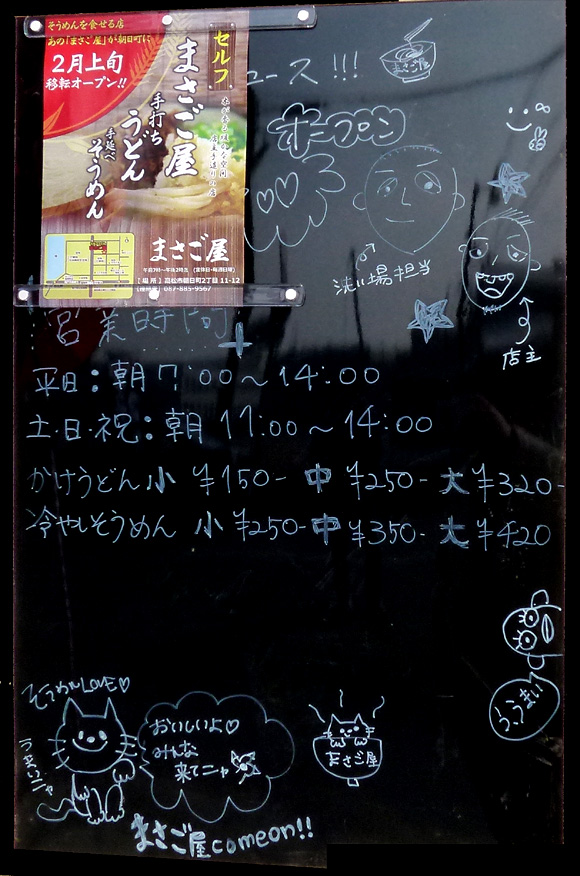 そうめんを食せる店
あの「まさご屋」が朝日町に
2月上旬
移転オープン!!
セルフ
まさご屋
手打ち
うどん
手延べ
そうめん
まさご屋
午前7時〜午後2時迄 (定休日・毎週日曜)
【場 所】高松市朝日町2丁目 11-12
087-885-9567
ュース!!!
まさご屋
オープン
洗い場担当
店主
営業時間
平日:朝7:00〜14:00
土・日・祝:朝11:00〜14:00
かけうどん 小 ¥150- 中 ¥250- 大 ¥320-
冷やしそうめん 小 ¥250- 中 ¥350- 大 ¥420
うっうまい
そうめんLOVE♡
うまいニャ
おいしいよ♡
みんな
来てニャ
まさご屋
まさご屋comeon!!